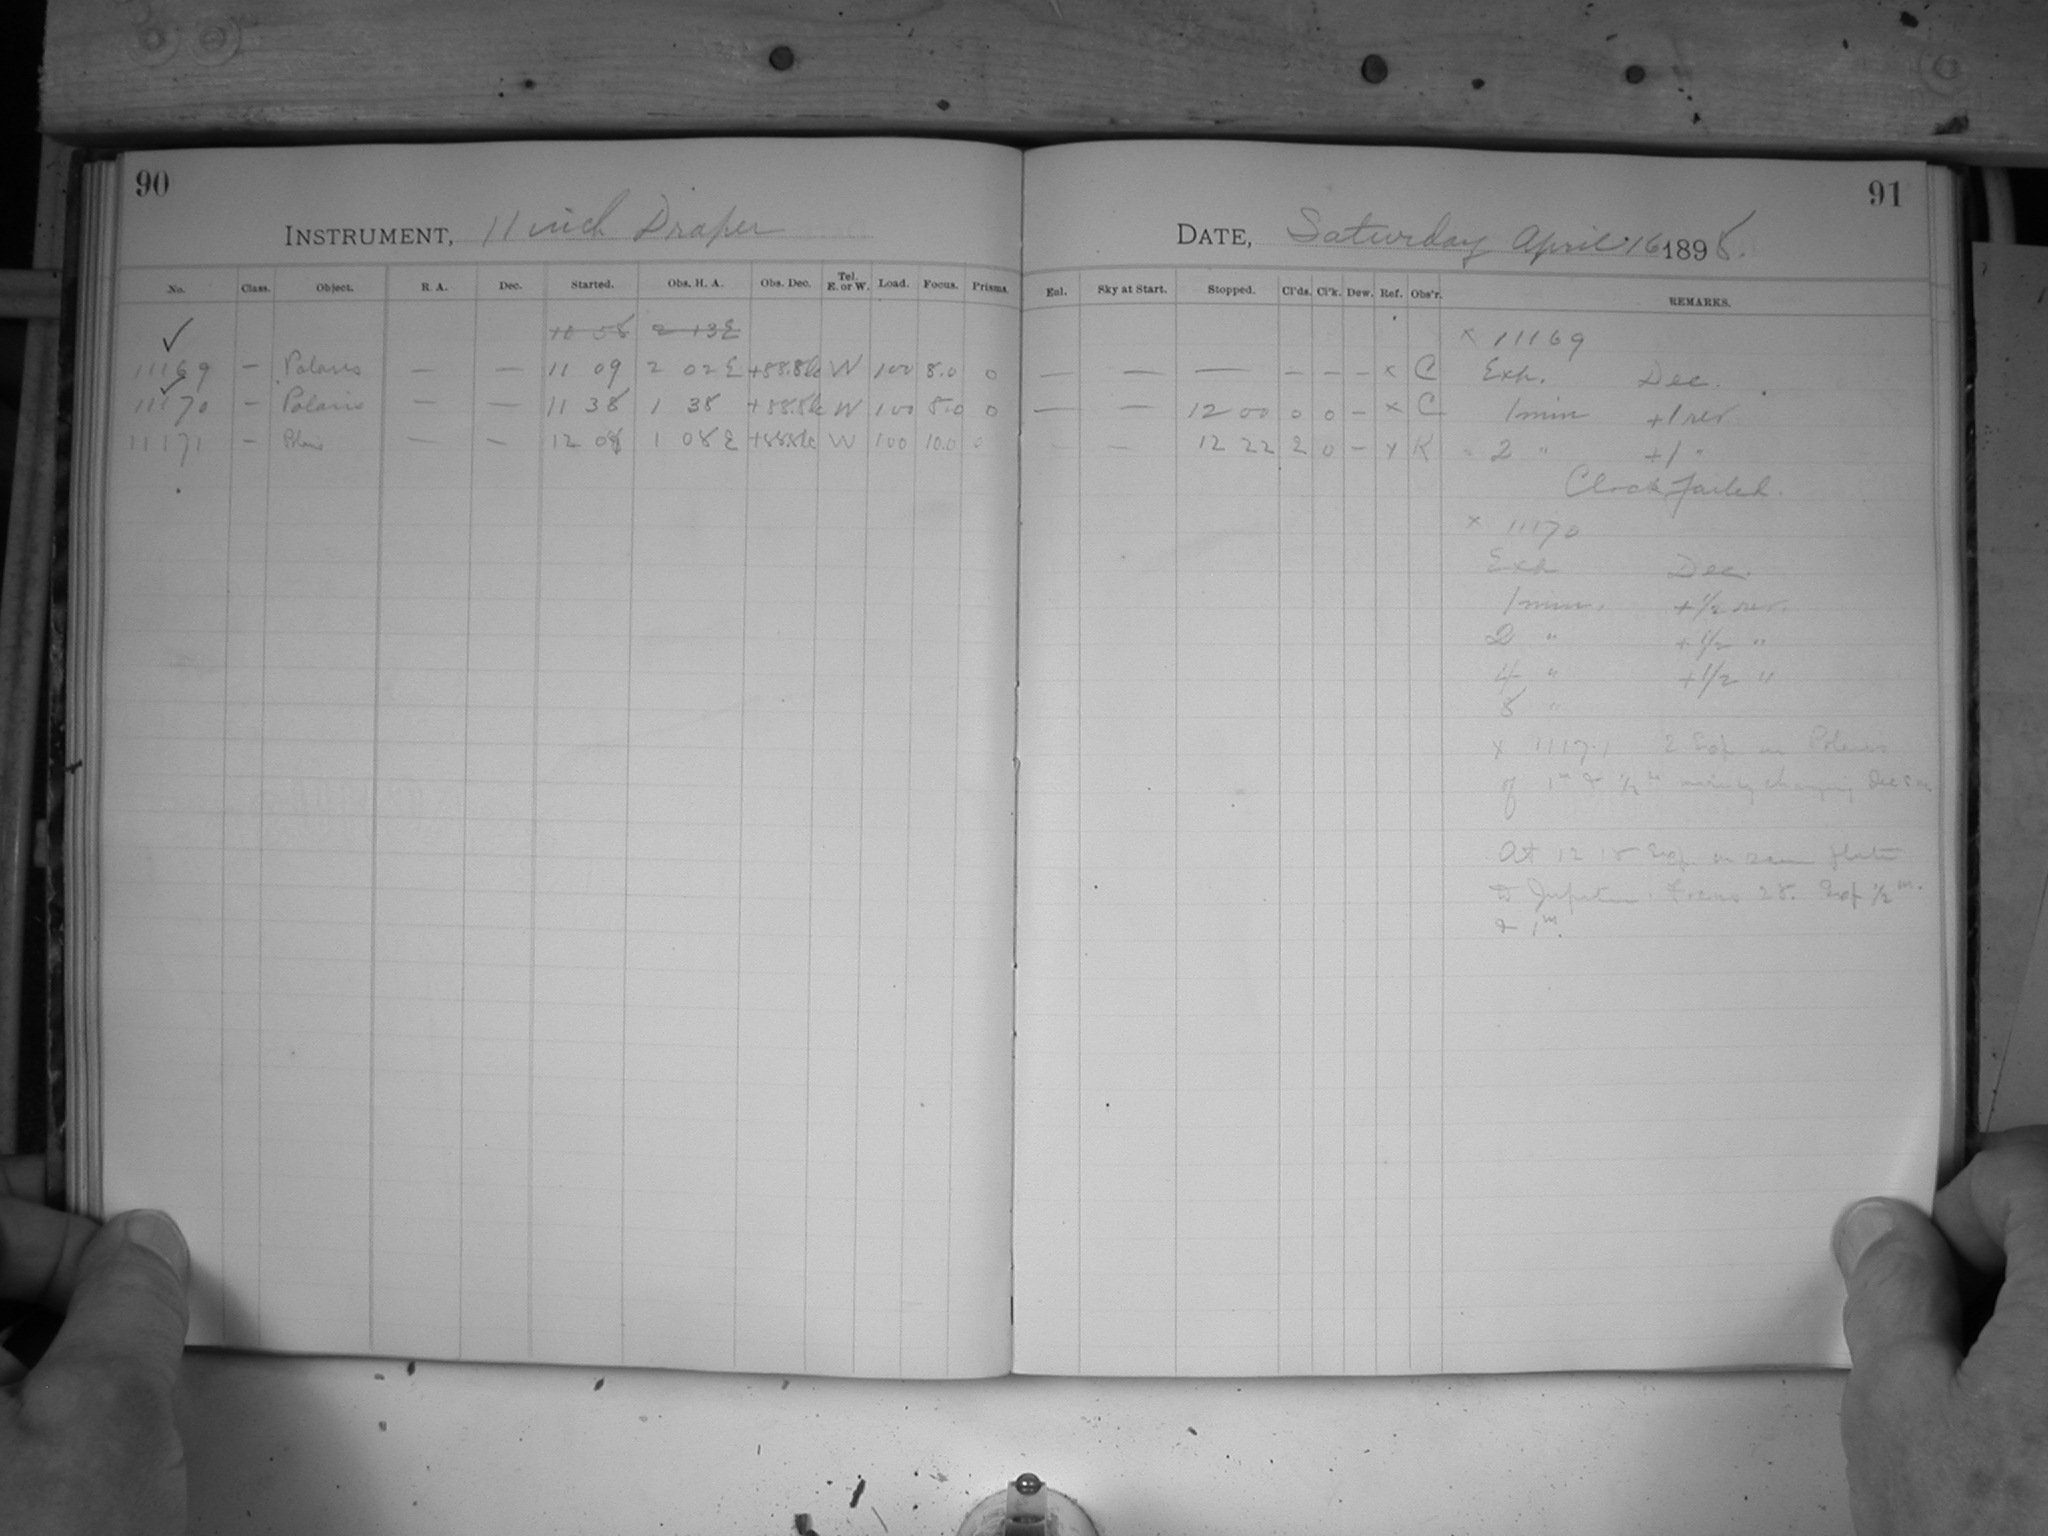 90
INSTRUMENT, 11 inch Draper
No. Class. Object. R. A. Dec. Started. Obs. H. A. Obs. Dec. Tel. E. or W. Load. Focus. Prisms.
10 58 2 13 E
11169 — Polaris — — 11 09 2 02 E +88.8 W 100 8.0 0
11170 — Polaris — — 11 38 1 38 +88.8 W 100 8.0 0
11171 — — — 12 08 1 08 E W 100 10.0 0
91
DATE, Saturday April 16 1898.
Enl. Sky at Start. Stopped. Cl'ds. Cl'k. Dew. Ref. Obs'r. REMARKS.
x 11169
— — — — — — x C Exp. Dec.
— — 12 00 0 0 — x C 1 min +1 rev.
— — 12 22 2 0 — x K 2 " +1 "
Clock failed.
x 11170
Exp. Dec.
1 min. +1/2 rev.
2 " +1/2 "
4 " +1/2 "
8 "
x 11171 2 Exp on Polaris
of 1m & 1/2m changing
At 12 18 Exp. on same plate
to Jupiter. Focus 28. Exp 1/2m.
& 1m.